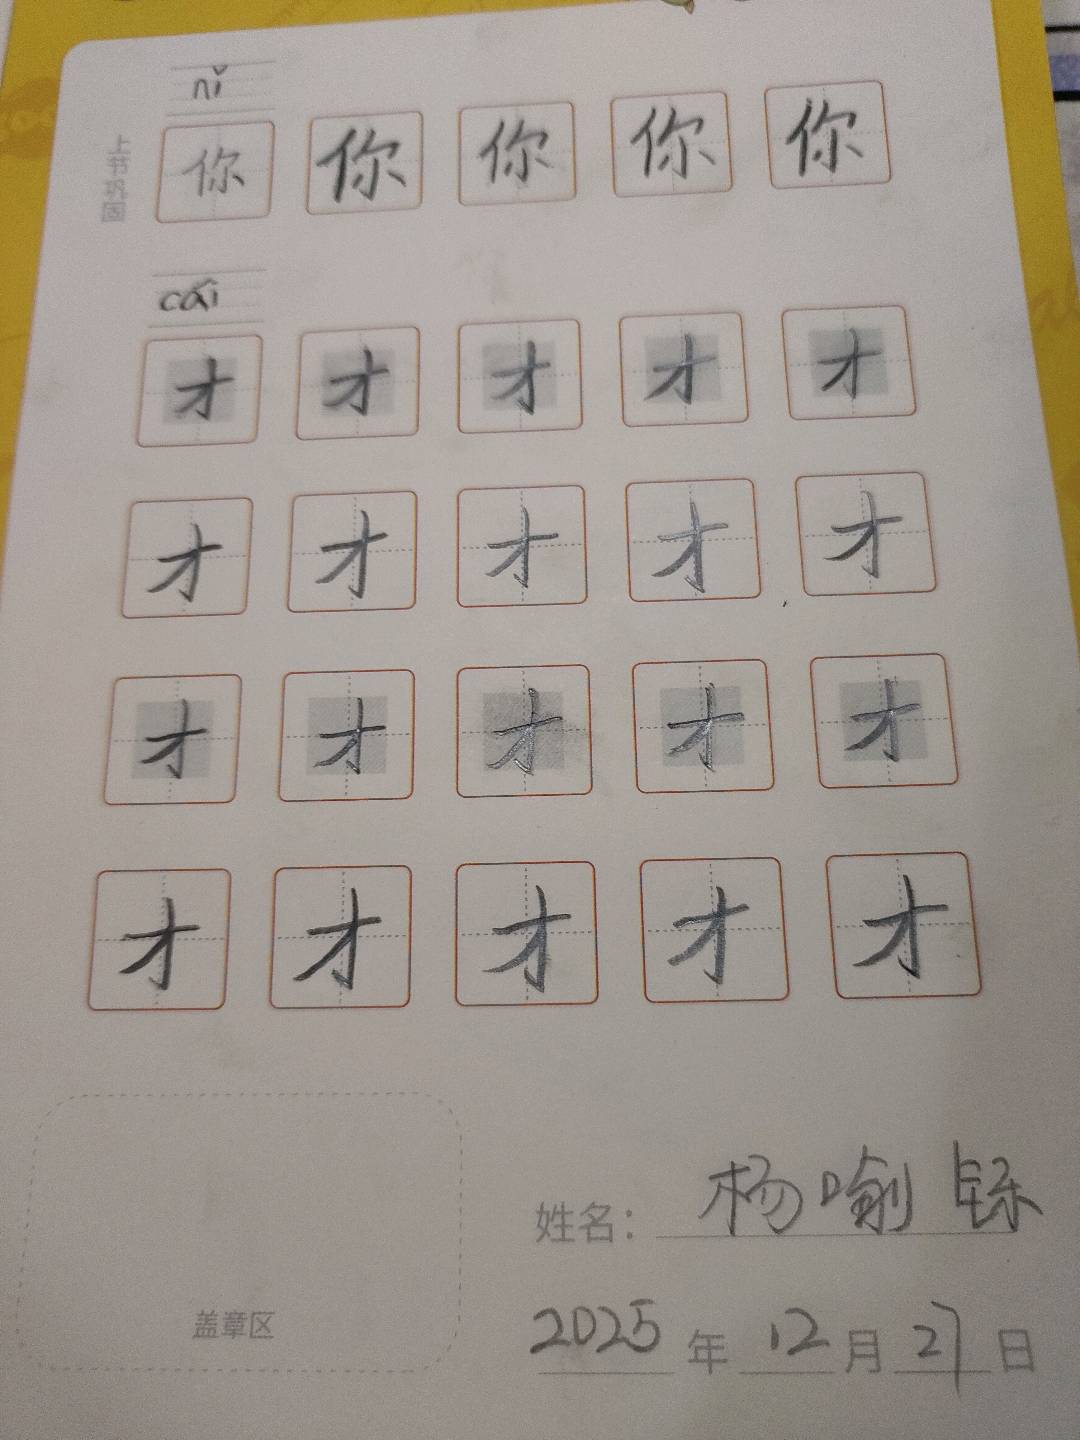 nǐ
上节巩固
你 你 你 你 你
cái
才 才 才 才 才
才 才 才 才 才
才 才 才 才 才
才 才 才 才 才
姓名：杨喻铄
盖章区
2025年12月27日